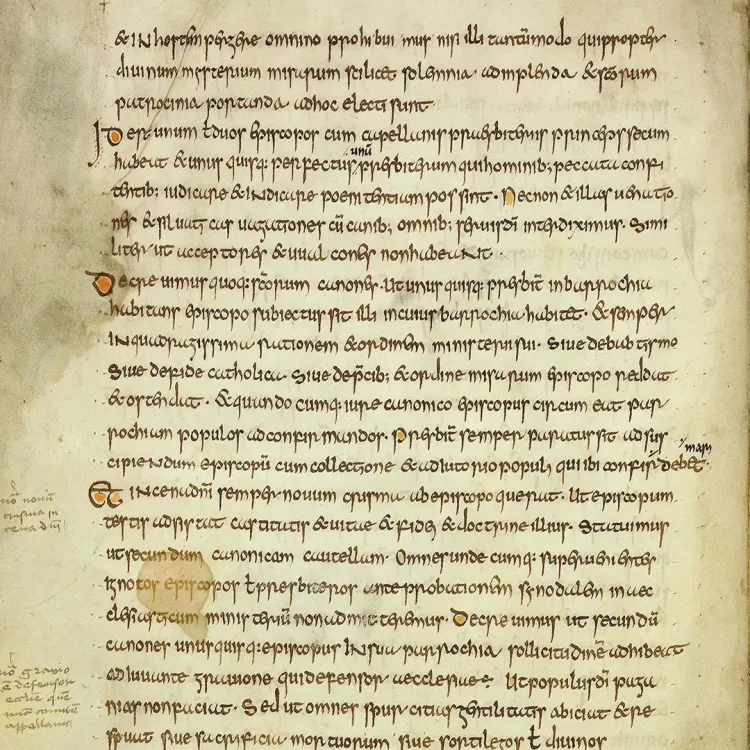 & IN hostem pergere omnino prohibuimus nisi illi tantummodo qui propter
divinum mysterium missarum scilicet solemnia adimplenda & scorum
patrocinia portanda ad hoc electi sunt
Id est unum ł duos episcopos cum capellanis praesbiteris princeps secum
habeat & unus quisq: perfectus unu praesbiterum qui hominib; peccata confi
tentib; iudicare & indicare poenitentiam possint. Necnon & illas venatio
nes & silvaticas vagationes cu canib; omnib; servis di interdiximus. Simi
liter ut acceptores & walcones non habeant.
Decrevimus quoq: scorum canones. Ut unus quisq: presbit in parrochia
habitans episcopo subiectus sit illi in cuius parrochia habitet. & semper
IN quadragissima rationem & ordinem ministerii sui. Sive de baptismo
Sive de fide catholica Sive de pcib; & ordine missarum episcopo reddat
& ostendat. & quando cumq: iure canonico episcopus circumeat par
rochiam populos ad confirmandos. Presbit semper paratus sit ad sus
cipiendum episcopu cum collectione & adiutorio populi qui ibi confir mari deb&.
Et IN cena dni semper novum crisma ab episcopo querat. Ut episcopum
testis adsistat castitatis & vitae & fidei & doctrine illius. Statuimus
ut secundum canonicam cautellam. Omnes undecumq: supervenientes
ignotos episcopos ł presbiteros ante probationem synodalem in aec
clesiasticum ministeriu non admitteremus. Decrevimus ut secundu
canones unusquisq: episcopus IN sua parrochia sollicitudine adhibeat
adiuvante gravione qui defensor aecclesiae. Ut populus di paga
nias non faciat. Sed ut omnes spurcitias gentilitatis abiciat & re
spuat sive sacrificia mortuorum sive sortilegos ł divinos
no noviu
crisma in
cena dni
no gravio
e defensor
eccłie que